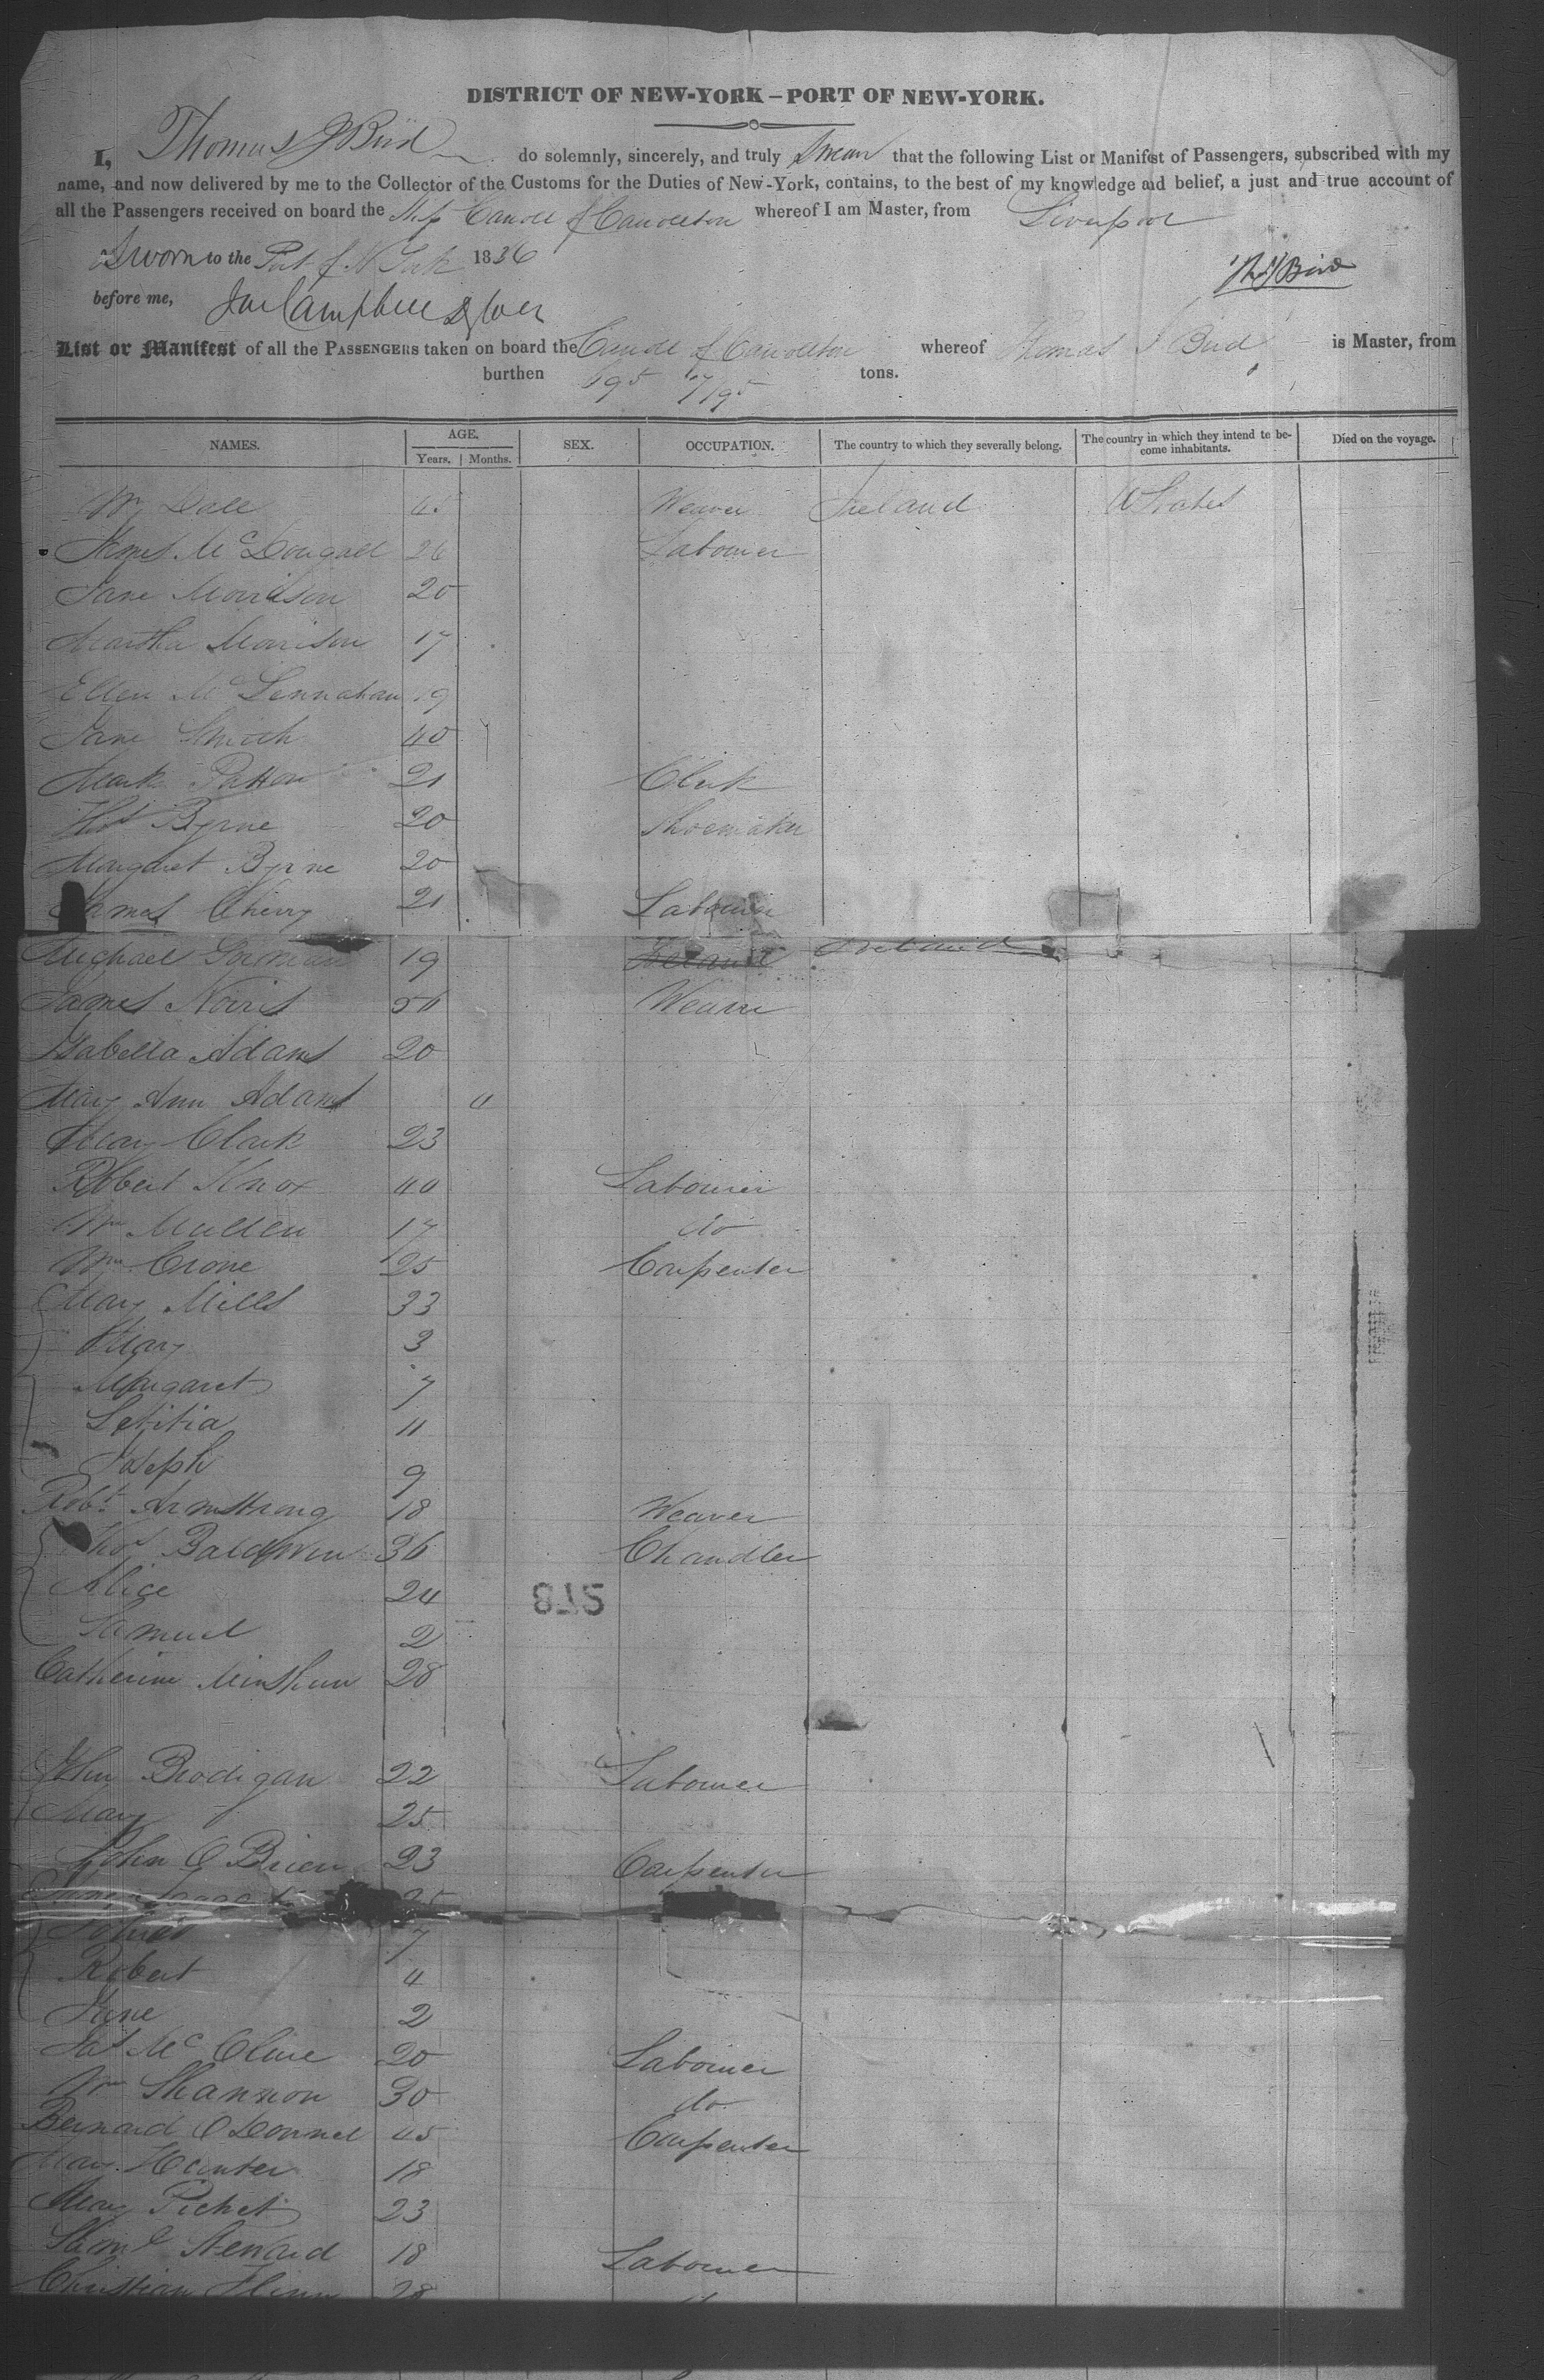 DISTRICT OF NEW-YORK – PORT OF NEW-YORK.
I, Thomas J Bird do solemnly, sincerely, and truly Swear that the following List or Manifest of Passengers, subscribed with my
name, and now delivered by me to the Collector of the Customs for the Duties of New-York, contains, to the best of my knowledge and belief, a just and true account of
all the Passengers received on board the Ship Carroll of Carrollton whereof I am Master, from Liverpool
Sworn to the Port of N York 1836
Thos J Bird
before me, Campbell
List or Manifest of all the PASSENGERS taken on board the of Carrollton whereof Thomas J Bird is Master, from
burthen 695 tons.
NAMES. AGE. Years. Months. SEX. OCCUPATION. The country to which they severally belong. The country in which they intend to become inhabitants. Died on the voyage.
Wm Dale Weaver Ireland U States
James McDougall 26 Labourer
Jane Morrison 20
Martha Morrison 17
Ellen Mc Lennahan 19
Jane Smith 40
Mark Patton 21 Clerk
Thos Byrne 20 Shoemaker
Margaret Byrne 20
James Cherry 21 Labourer
Michael Gorman 19 Ireland Ireland
James Norris 50 Weaver
Isabella Adams 20
Mary Ann Adams 11
Mary Clark 23
Robert Knox 40 Labourer
Wm Mullen 17 do
Wm Crone 25 Carpenter
Mary Mills 33
Mary 3
Margaret 7
Letitia 11
Joseph 9
Robt Armstrong 18 Weaver
Thos Baldwin 36 Chandler
Alice 24
875
Samuel 2
Catherine Minshum 28
John Brodigan 22 Labourer
Mary 25
John O Brien 23 Carpenter
25
James 7
Robert 4
Jane 2
Jas Mc Clure 20 Labourer
Wm Shannon 30 do
Bernard O Donnel 45 Carpenter
Mary Hunter 18
Mary Pichet 23
Saml Steward 18 Labourer
Christian Flinn 28